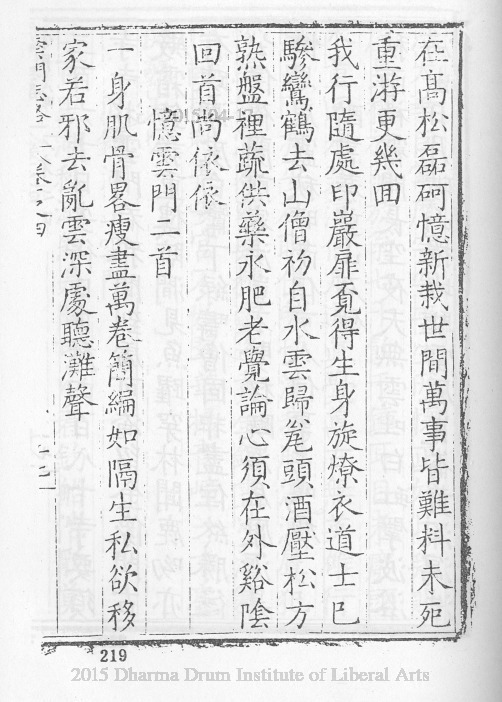 在高松磊砢憶新栽世間萬事皆難料未死
重游更幾田
我行隨處印嚴扉覓得生身旋燎衣道士已
驂鸞鶴去山僧初自水雲歸瓮頭酒壓松方
熟盤裡蔬供藥永肥老覺論心須在外谿陰
回首尚依依
憶雲門二首
一身肌骨畧瘦盡萬卷簡編如隔生私欲移
家若邪去亂雲深處聽灘聲
雲門志略 卷之四
219
2015 Dharma Drum Institute of Liberal Arts